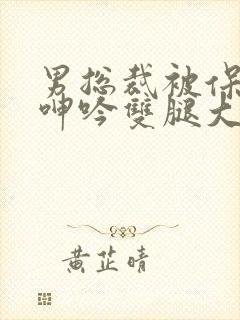 男总裁被保
呻吟雙腿大
黄芷晴